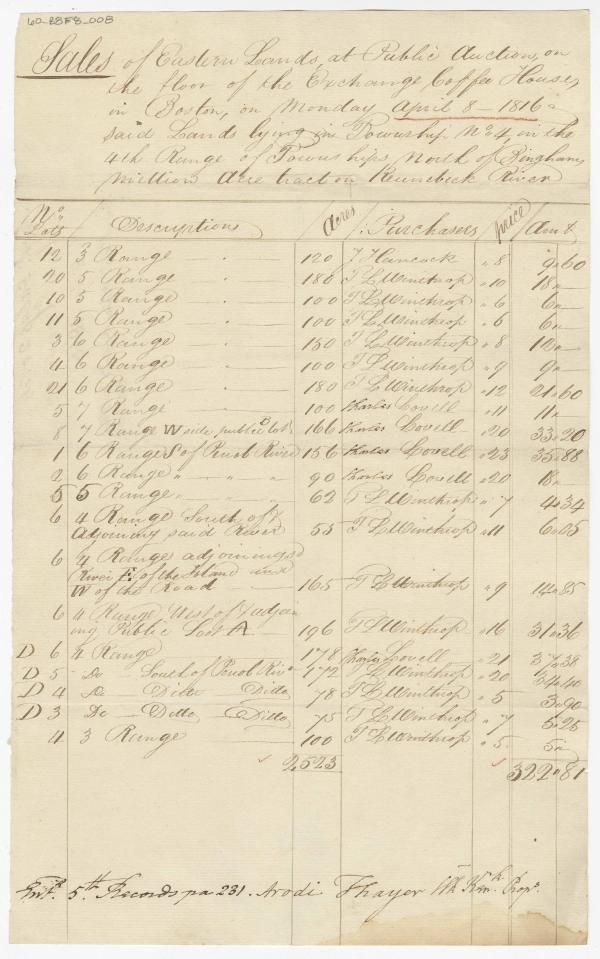 60-B8F8-008
Sales of Eastern Lands, at Public Auction, on
the floor of the Exchange Coffee House,
in Boston, on Monday April 8 - 1816
said Lands lying in Township No. 4, in the
4th Range of Townships North of Bingham
million acre tract on Kennebeck River
No. Lots / Descriptions / Acres / Purchasers / price / Amt
12 3 Range 120 T Hancock " 8 9 " 60
20 5 Range 180 T L Winthrop " 10 18 " —
10 5 Range 100 T L Winthrop " 6 6 " —
11 5 Range 100 T L Winthrop " 6 6 " —
3 6 Range 150 T L Winthrop " 8 12 " —
4 6 Range 100 T L Winthrop " 9 9 " —
21 6 Range 180 T L Winthrop " 12 21 " 60
5 7 Range 100 Charles Lovell " 11 11 " —
8 7 Range W side public B lot 166 Charles Lovell " 20 33 " 20
1 6 Range S of Penob River 156 Charles Lovell " 23 35 " 88
2 6 Range " — " — " 90 Charles Lovell " 20 18 " —
5 5 Range " — " — " 62 T L Winthrop " 7 4 " 34
6 4 Range South of &
Adjoining said River 55 T L Winthrop " 11 6 " 05
6 4 Ranges adjoining sd
River E of the Island and
W of the Road 165 T L Winthrop " 9 14 " 85
6 4 Range West of & adjoin
ing Public Lot A — 196 T L Winthrop " 16 31 " 36
D 6 4 Range 178 Charles Lovell " 21 37 " 38
D 5 Do South of Penob River 172 T L Winthrop " 20 34 " 40
D 4 Do — Ditto — Ditto 78 T L Winthrop " 5 3 " 90
D 3 Do — Ditto — Ditto 75 T L Winthrop " 7 5 " 25
4 3 Range 100 T L Winthrop " 5 5 " —
2523 322 " 81
5th Records pa 231. Arodi Thayer Clk Propr.